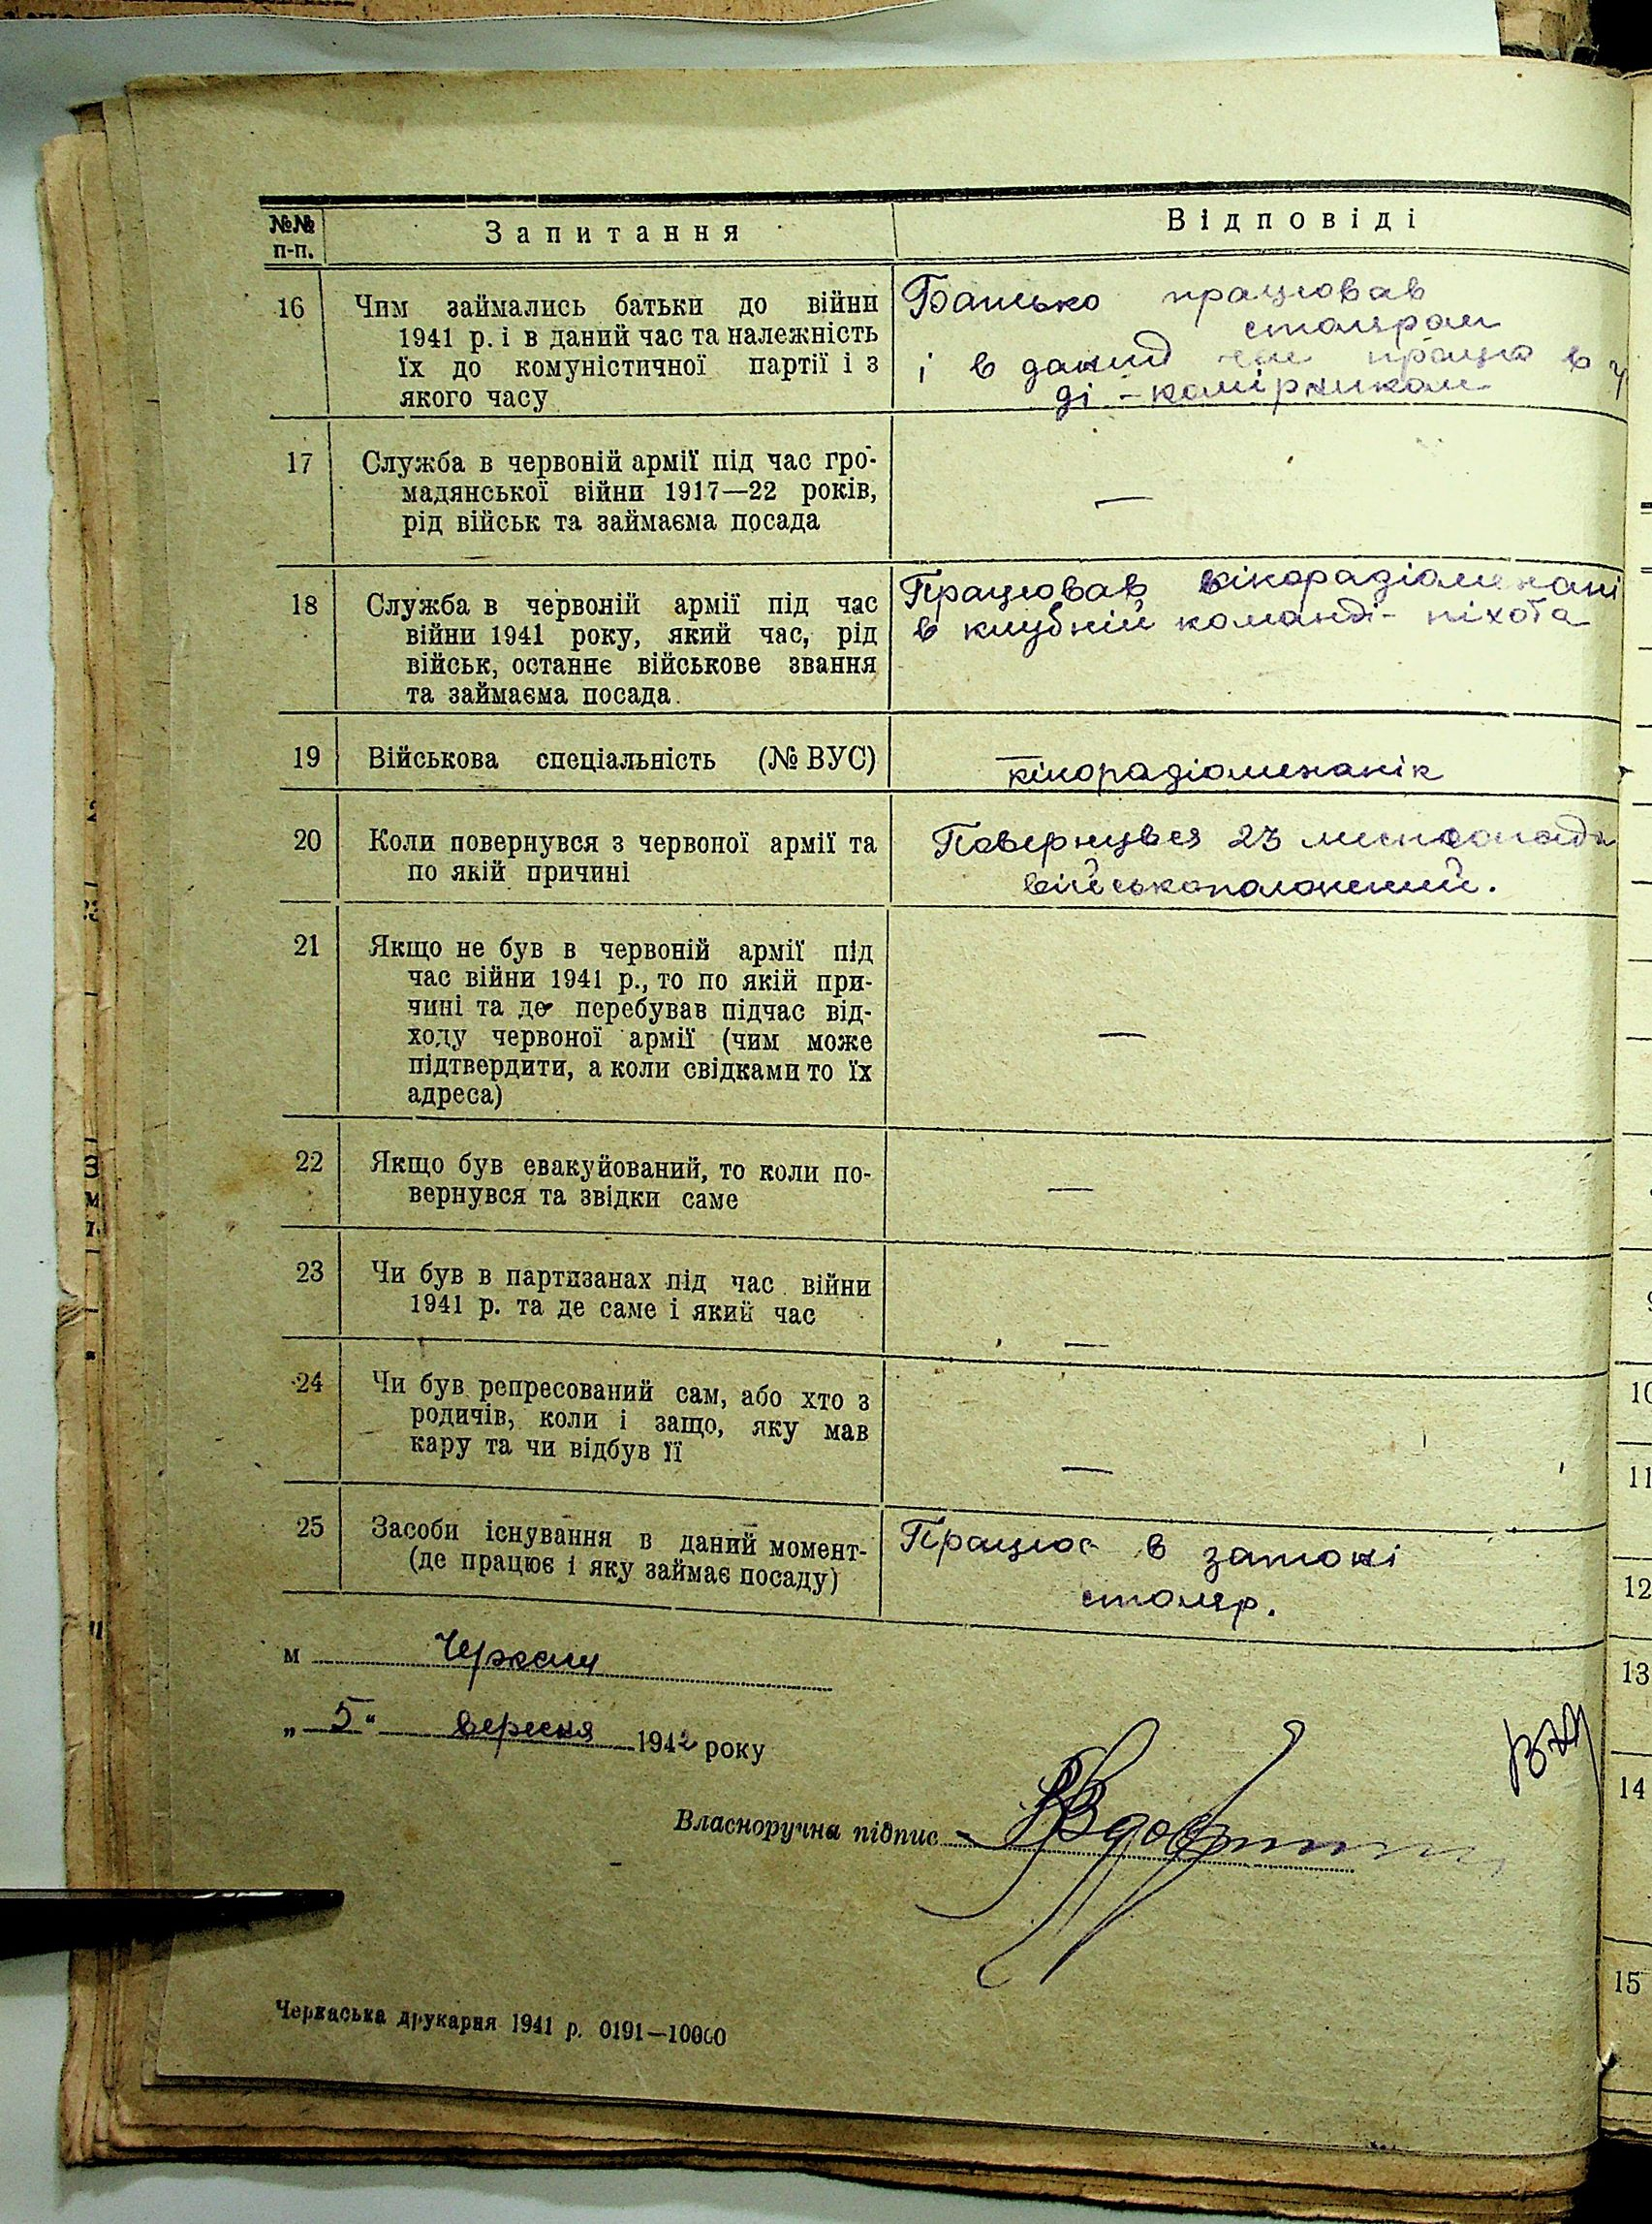 №№ п-п.
Запитання
Відповіді
16
Чим займались батьки до війни
1941 р. і в даний час та належність
їх до комуністичної партії і з
якого часу
Батько працював
столяром
і в даний час працює в
ді - комірником
17
Служба в червоній армії під час гро-
мадянської війни 1917—22 років,
рід військ та займаєма посада
—
18
Служба в червоній армії під час
війни 1941 року, який час, рід
військ, останнє військове звання
та займаєма посада.
Працював кінорадіомехані
в клубній команді - піхота
19
Військова спеціальність (№ ВУС)
кінорадіомеханік
20
Коли повернувся з червоної армії та
по якій причині
Повернувся 23 листопада
військополонений.
21
Якщо не був в червоній армії під
час війни 1941 р., то по якій при-
чині та де перебував підчас від-
ходу червоної армії (чим може
підтвердити, а коли свідками то їх
адреса)
—
22
Якщо був евакуйований, то коли по-
вернувся та звідки саме
—
23
Чи був в партизанах під час війни
1941 р. та де саме і який час
—
24
Чи був репресований сам, або хто з
родичів, коли і защо, яку мав
кару та чи відбув її
—
25
Засоби існування в даний момент-
(де працює і яку займає посаду)
Працює в затоні
столяр.
м Черкаси
„ 5 " вересня 1942 року
Власноручна підпис
Черкаська друкарня 1941 р. 0191—10000
10
11
12
13
14
15